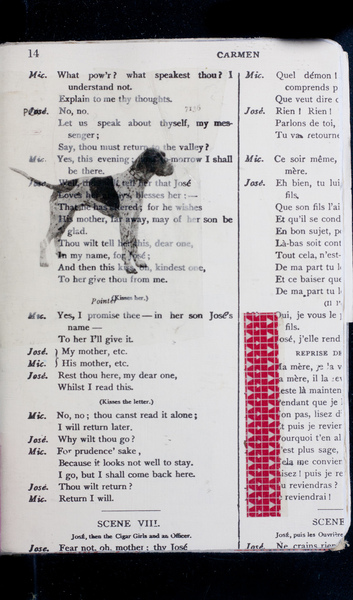 14
CARMEN
Mic. What pow'r? what speakest thou? I
understand not.
Explain to me thy thoughts.
José. No, no.
7136
Let us speak about thyself, my mes-
senger;
Say, thou must return the valley?
Mic. Yes, this evening; morrow I shall
be there.
tell her that José
Loves her, blesses her:—
That he has ; for he wishes
His mother, far away, may of her son be
glad.
Thou wilt tell her this, dear one,
In my name, for José;
And then this kiss, oh, kindest one,
To her give thou from me.
Pointer
(Kisses her.)
Mic. Yes, I promise thee—in her son José's
name—
To her I'll give it.
José. } My mother, etc.
Mic. } His mother, etc.
José. Rest thou here, my dear one,
Whilst I read this.
(Kisses the letter.)
Mic. No, no; thou canst read it alone;
I will return later.
José. Why wilt thou go?
Mic. For prudence' sake,
Because it looks not well to stay.
I go, but I shall come back here.
José. Thou wilt return?
Mic. Return I will.
SCENE VIII.
José, then the Cigar Girls and an Officer.
José. Fear not, oh, mother; thy José
Mic. Quel démon !
comprends p
Que veut dire c
José. Rien ! Rien !
Parlons de toi,
Tu vas retourne
Mic. Ce soir même,
mère.
José. Eh bien, tu lui
fils,
Que son fils l'ai
Et qu'il se cond
En bon sujet, p
Là-bas soit cont
Tout cela, n'est-
De ma part tu l
Et ce baiser que
De ma part tu l
Oui, je vous le p
fils.
José, j'elle rend
REPRISE DE
Ma mère, je la v
a mère, il la rev
reste là mainten
Pendant que je
on pas, lisez d
t puis je revien
ourquoi t'en al
'est plus sage,
Cela me convien
isez ! puis je re
u reviendras ?
e reviendrai !
SCENE
José, puis les Ouvrière
José. Ne crains rien